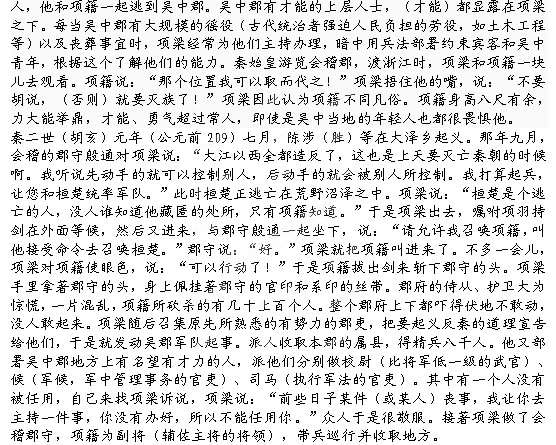 人，他和项籍一起逃到吴中郡。吴中郡有才能的上层人士，（才能）都显露在项梁
之下。每当吴中郡有大规模的徭役（古代统治者强迫人民负担的劳役，如土木工程
等）以及丧葬事宜时，项梁经常为他们主持办理，暗中用兵法部署约束宾客和吴中
青年，根据这个了解他们的能力。秦始皇游览会稽郡，渡浙江时，项梁和项籍一块
儿去观看。项籍说：“那个位置我可以取而代之！”项梁捂住他的嘴，说：“不要
胡说，（否则）就要灭族了！”项梁因此认为项籍不同凡俗。项籍身高八尺有余，
力大能举鼎，才能、勇气超过常人，即使是吴中当地的年轻人也都很畏惧他。
秦二世（胡亥）元年（公元前209）七月，陈涉（胜）等在大泽乡起义。那年九月，
会稽的郡守殷通对项梁说：“大江以西全都造反了，这也是上天要灭亡秦朝的时候
啊。我听说先动手的就可以控制别人，后动手的就会被别人所控制。我打算起兵，
让您和桓楚统率军队。”此时桓楚正逃亡在荒野沼泽之中。项梁说：“桓楚是个逃
亡的人，没人谁知道他藏匿的处所，只有项籍知道。”于是项梁出去，嘱咐项羽持
剑在外面等候，然后又进来，与郡守殷通一起坐下，说：“请允许我召唤项籍，叫
他接受命令去召唤桓楚。”郡守说：“好。”项梁就把项籍叫进来了。不多一会儿，
项梁对项籍使眼色，说：“可以行动了！”于是项籍拔出剑来斩下郡守的头。项梁
手里拿着郡守的头，身上佩挂着郡守的官印和系印的丝带。郡府的侍从、护卫大为
惊慌，一片混乱，项籍所砍杀的有几十上百个人。整个郡府上下都吓得伏地不敢动，
没人敢起来。项梁随后召集原先所熟悉的有势力的郡吏，把要起义反秦的道理宣告
给他们，于是就发动吴郡军队起事。派人收取本郡的属县，得精兵八千人。他又部
署吴中郡地方上有名望有才力的人，派他们分别做校尉（比将军低一级的武官）、
候（军候，军中管理事务的官吏）、司马（执行军法的官吏）。其中有一个人没有
被任用，自己来找项梁诉说，项梁说：“前些日子某件（或某人）丧事，我让你去
主持一件事，你没有办好，所以不能任用你。”众人于是很敬服。接着项梁做了会
稽郡守，项籍为副将（辅佐主将的将领），带兵巡行并收取地方。